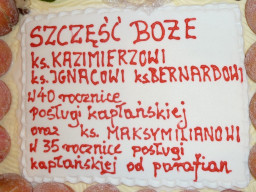 SZCZĘŚĆ BOŻE
ks. KAZIMIERZOWI
ks. IGNACOWI ks BERNARDOWI
w 40 rocznicę
posługi kapłańskiej
oraz ks. MAKSYMILIANOWI
w 35 rocznicę posługi
kapłańskiej od parafian